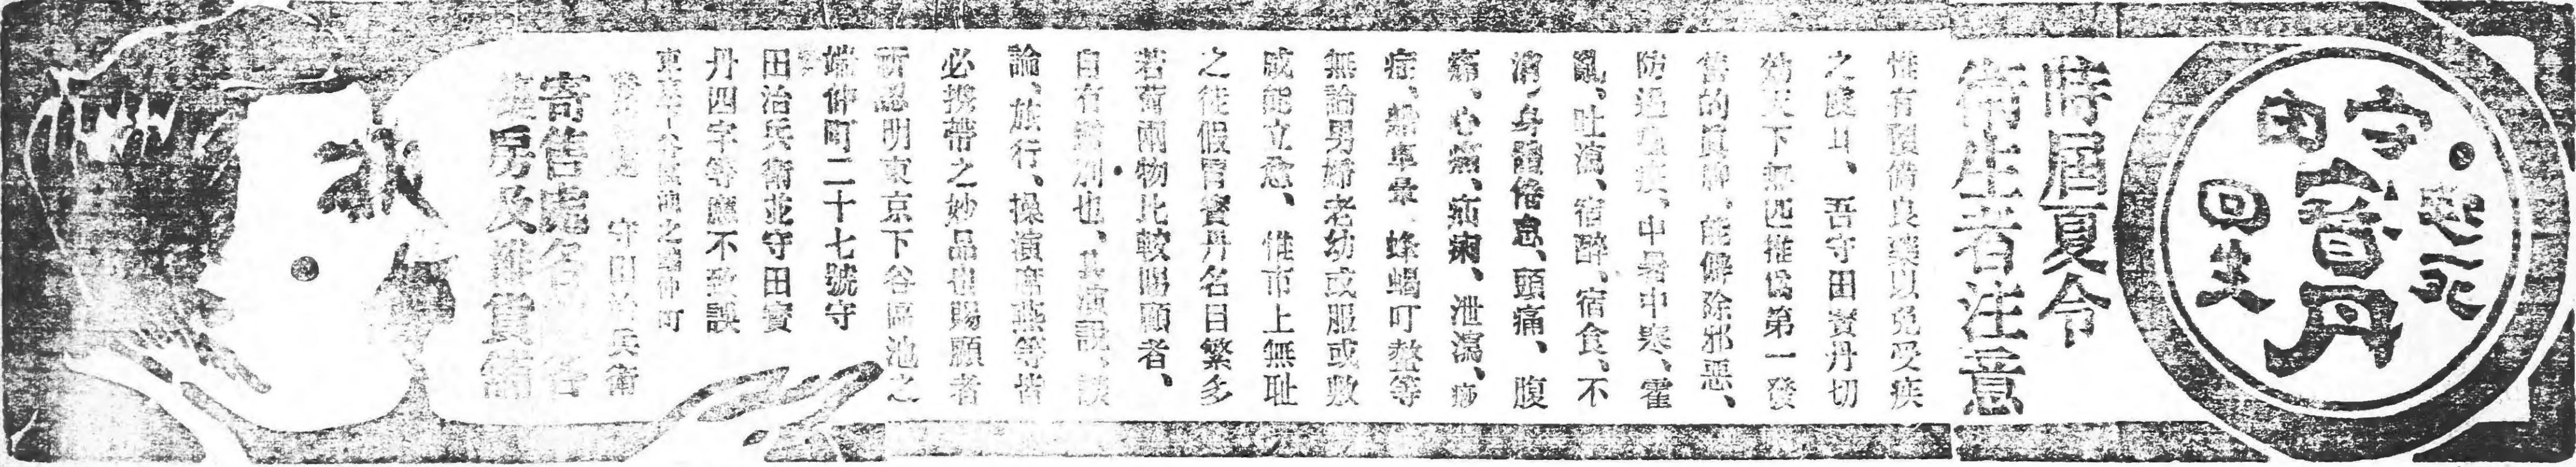 守田
寶丹
起死
回生
時屆夏令
衛生者注意
惟有預備良藥以免受疾
之虞耳、吾守田寶丹切
効天下無匹推為第一發
售的真牌、能僻除邪惡、
防過疾、中暑中寒、霍
亂、吐瀉、宿醉、宿食、不
消、身體倦怠、頭痛、腹
痛、心痛、疝痢、泄瀉、痧
症、船車暈、蜂蝎叮螫等
無論男婦老幼或服或敷
咸能立愈、惟市上無耻
之徒假冒寶丹名目繁多
若荷兩物比較賜顧者、
自有鑒別也、其演說、談
論、旅行、操演席燕等皆
必携帶之妙品也賜顧者
祈認明東京下谷區池之
端仲町二十七號守
田治兵衛並守田寶
丹四字等應不致誤
東京下谷區池之端仲町
守田治兵衛
寄售處各
藥房及雜貨舖